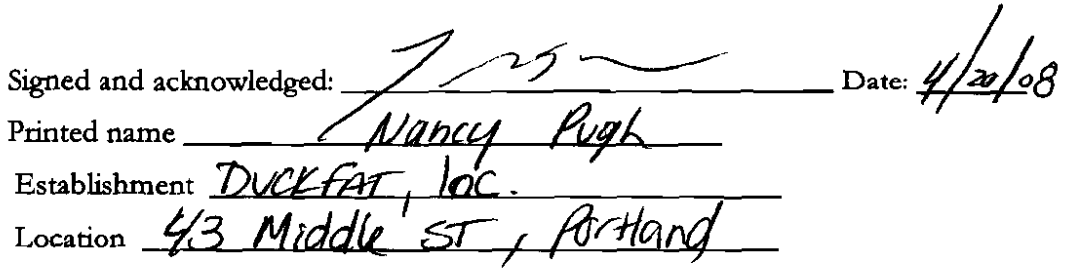 Signed and acknowledged: Date: 4/20/08
Printed name Nancy Pugh
Establishment DUCKFAT, Inc.
Location 43 Middle ST, Portland